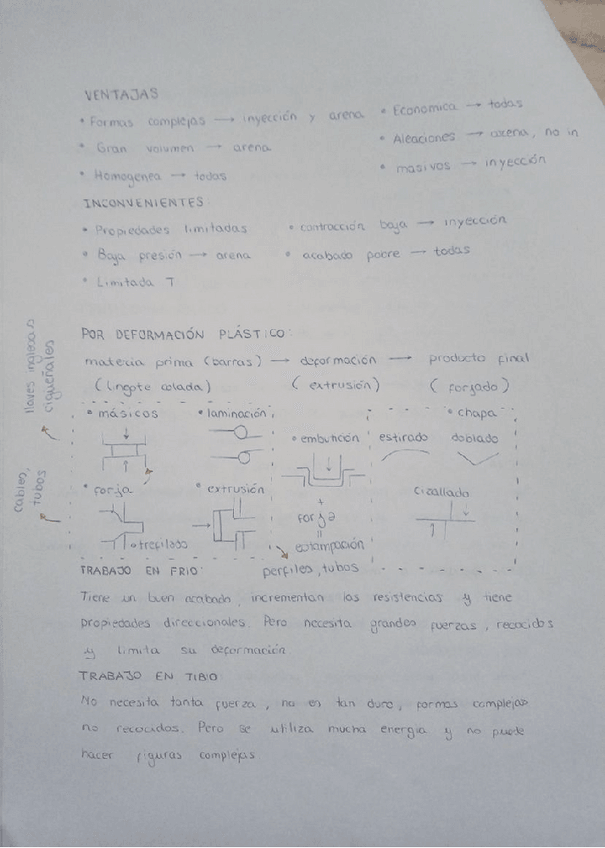 VENTAJAS
• Formas complejas → inyección y arena
• Gran volumen → arena
• Homogenea → todas
• Economica → todas
• Aleaciones → arena, no in
• masivos → inyección
INCONVENIENTES:
• Propiedades limitadas
• Baja presión → arena
• Limitada T
• contracción baja → inyección
• acabado pobre → todas
POR DEFORMACIÓN PLÁSTICO:
materia prima (barras) → deformación → producto final
(lingote colada) (extrusión) (forjado)
llaves inglesas
cigueñales
cables,
tubos
• másicos • laminación
• embutición
• chapa
estirado doblado
• forja • extrusión
cizallado
+
forja
=
estampación
• trefilado
perfiles, tubos
TRABAJO EN FRIO:
Tiene un buen acabado, incrementan las resistencias y tiene
propiedades direccionales. Pero necesita grandes fuerzas, recocidos
y limita su deformación
TRABAJO EN TIBIO:
No necesita tanta fuerza, no es tan duro, formas complejas
no recocidos. Pero se utiliza mucha energia y no puede
hacer figuras complejas